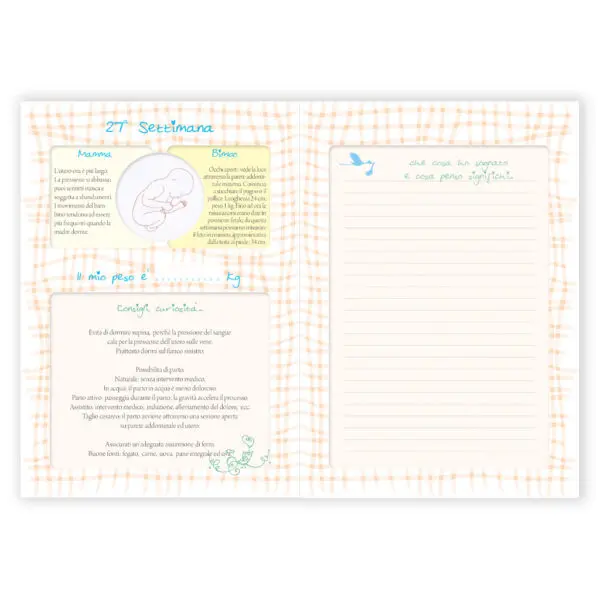 27ª Settimana
Mamma
L'utero ora è più largo.
La pressione si abbassa,
puoi sentirti stanca e
soggetta a sbandamenti.
I movimenti del bam-
bino tendono ad essere
più frequenti quando la
madre dorme.
Bimbo
Occhi aperti: vede la luce
attraverso la parete addomi-
nale materna. Comincia
a succhiare il pugno o il
pollice. Lunghezza 24 cm,
peso 1 kg. Fino ad ora la
misurazioni erano date in
posizione fetale, da questa
settimana possiamo misurare
il feto in maniera approssimativa
dalla testa al piede: 34 cm.
Il mio peso è ........... Kg
Consigli, curiosità...
Evita di dormire supina, perché la pressione del sangue
cala per la pressione dell'utero sulle vene.
Piuttosto dormi sul fianco sinistro.
Possibilità di parto:
Naturale: senza intervento medico.
In acqua: il parto in acqua è meno doloroso.
Parto attivo: passeggia durante il parto, la gravità accelera il processo.
Assistito: intervento medico, induzione, allenamento del dolore, ecc.
Taglio cesareo: il parto avviene attraverso una sezione aperta
su parete addominale ed utero.
Assicurati un'adeguata assunzione di ferro.
Buone fonti: fegato, carne, uova, pane integrale ed
che cosa ho sognato
e cosa penso significhi...